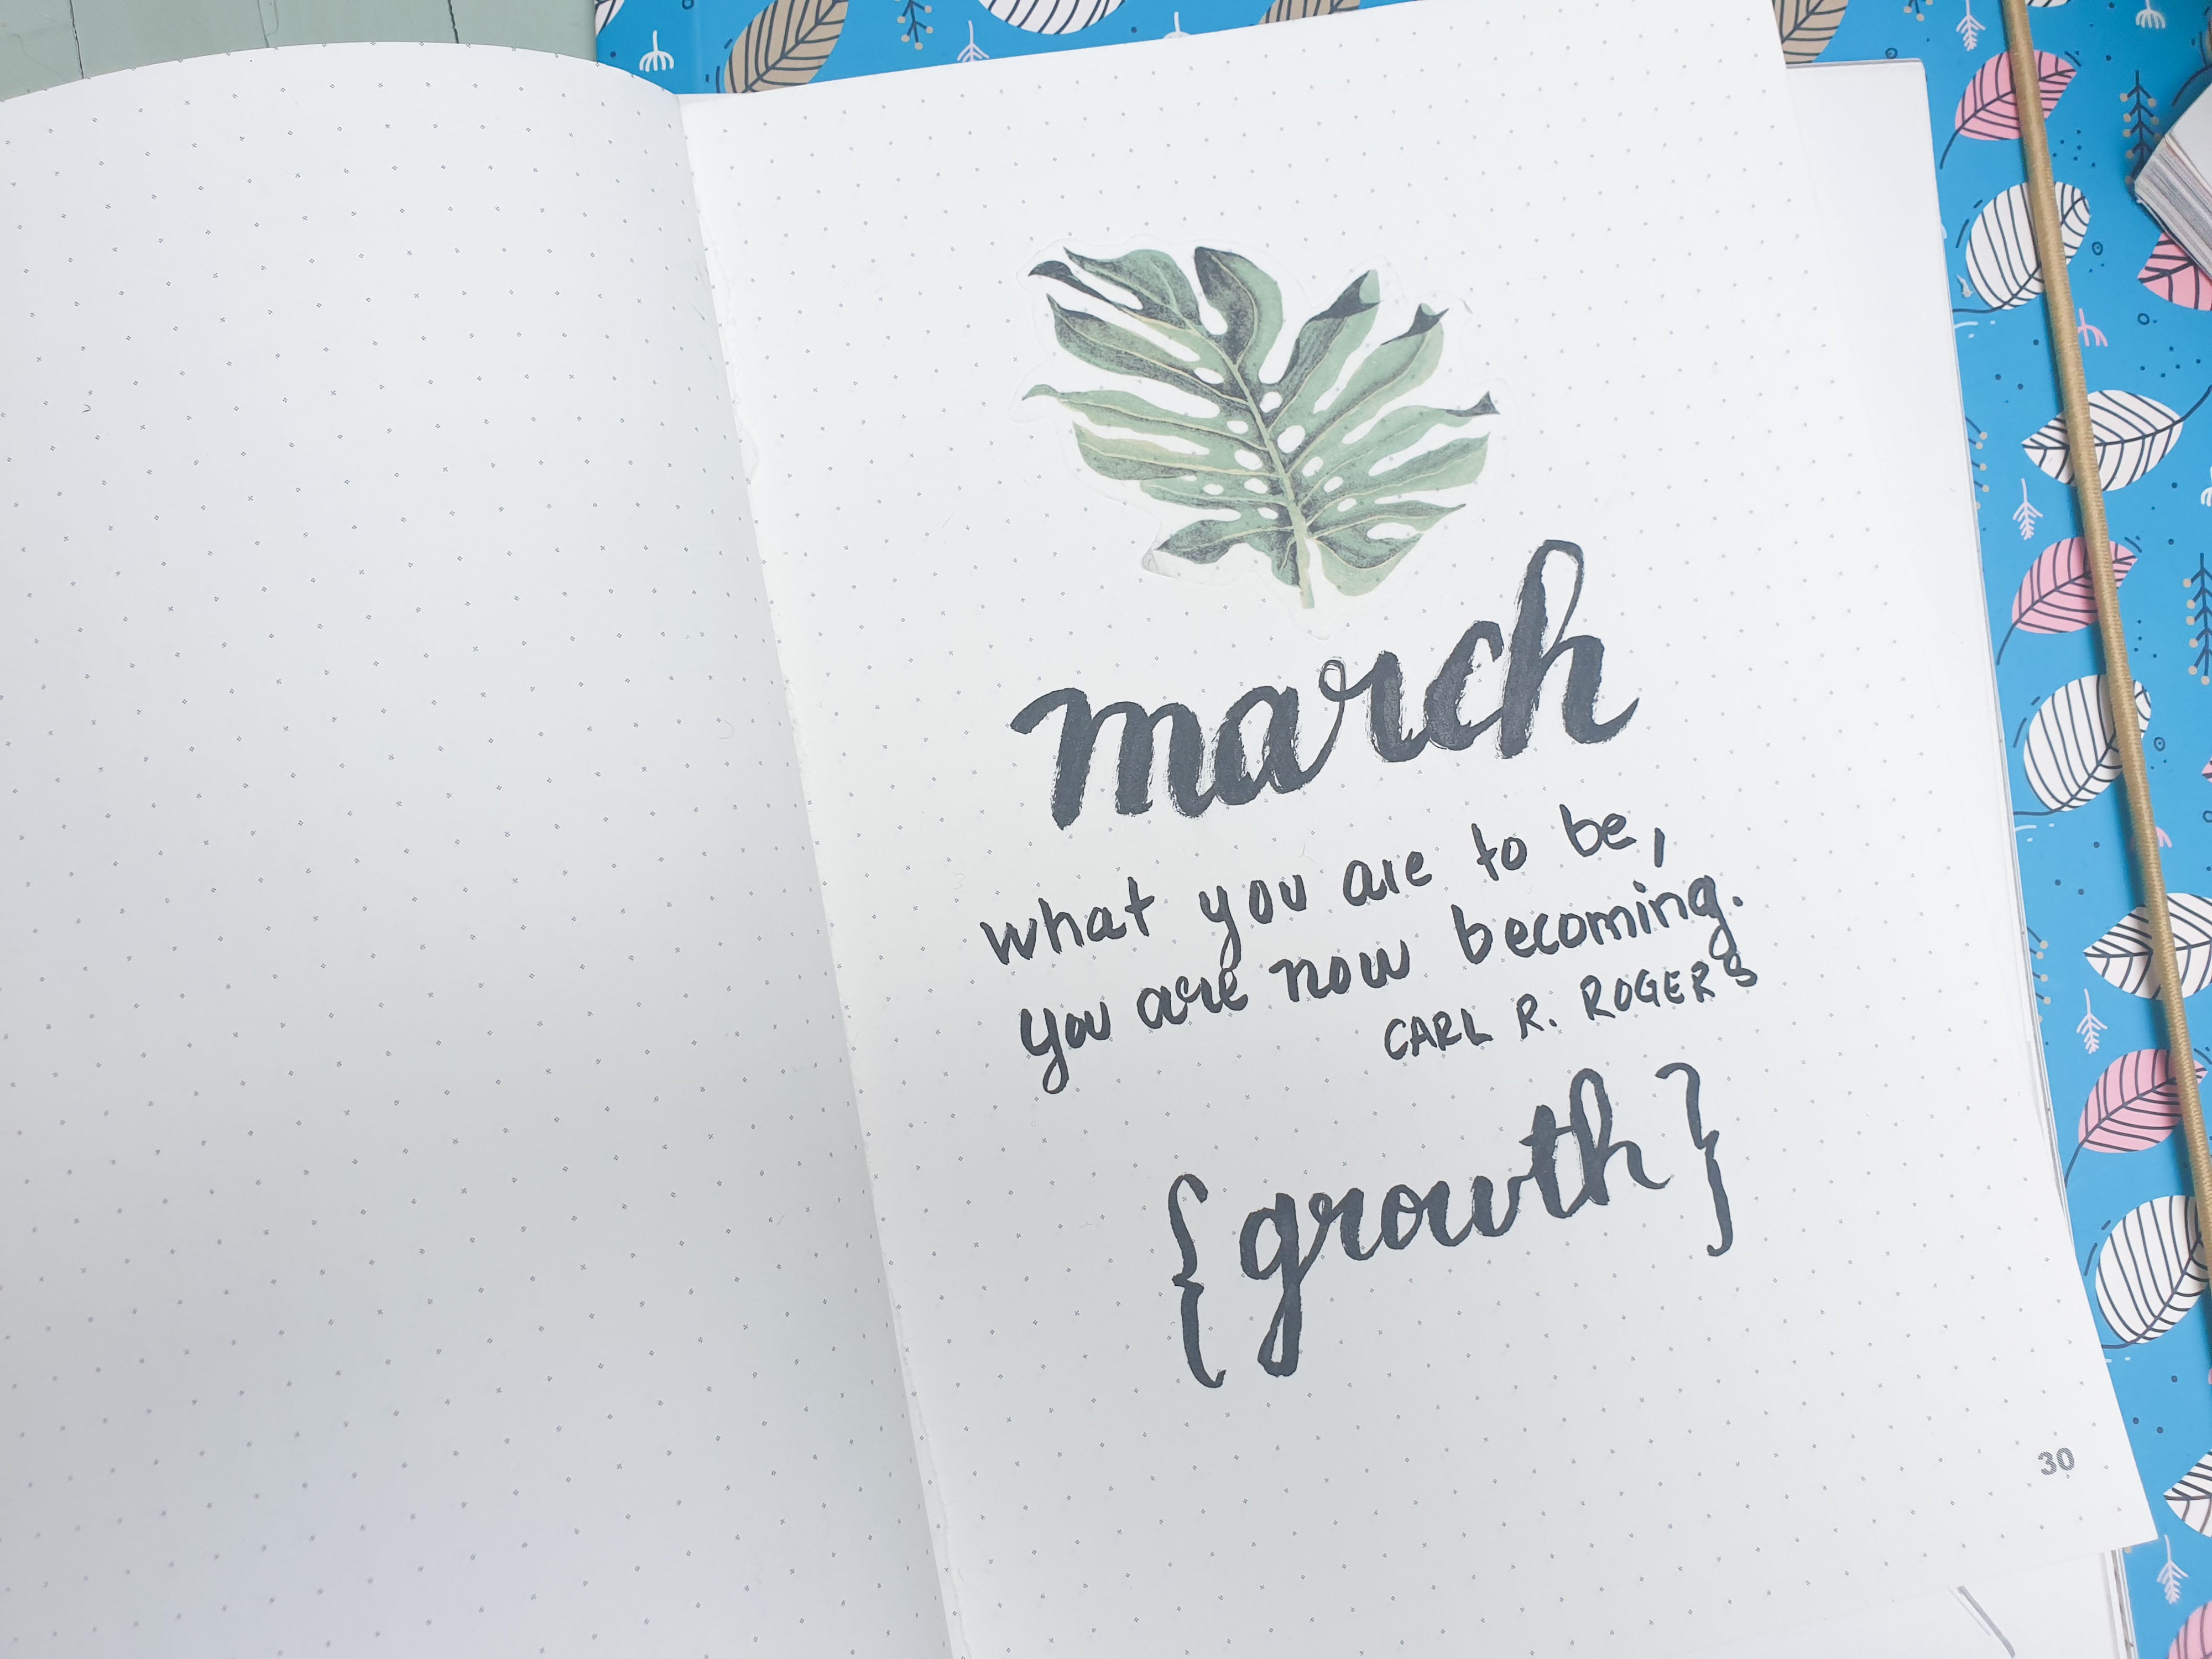 march
what you are to be,
you are now becoming.
CARL R. ROGERS
{growth}
30